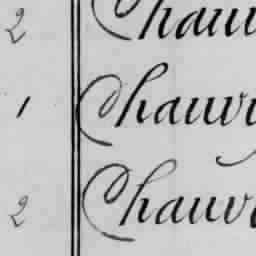 2 Chau
1 Chauv
2 Chauv